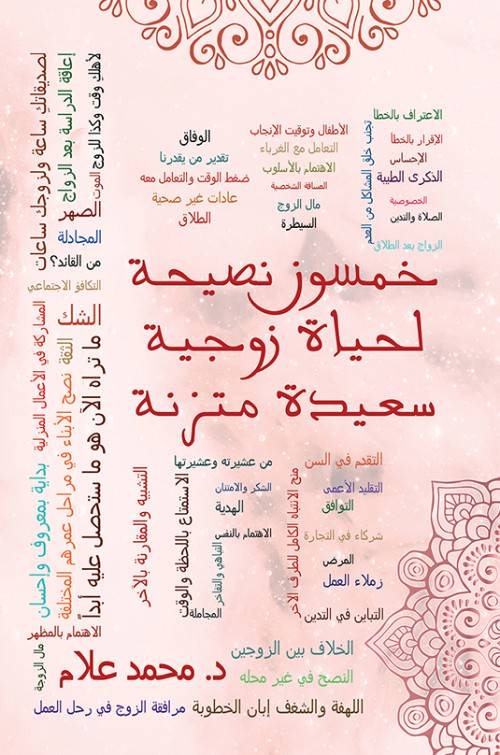 الاعتراف بالخطأ
الإقرار بالخطأ
الإحساس
الذكرى الطيبة
الخصوصية
الصلاة والتدين
الزواج بعد الطلاق
تجنب خلق المشاكل من العدم
الأطفال وتوقيت الإنجاب
التعامل مع الغرباء
الاهتمام بالأسلوب
المسافة الشخصية
مال الزوج
السيطرة
الوفاق
تقدير من يقدرنا
ضغط الوقت والتعامل معه
عادات غير صحية
الطلاق
لأهلك وقت وكذا للزوج
الموت
إعاقة الدراسة بعد الزواج
لصديقاتك ساعة ولزوجك ساعات
الصهر
المجادلة
من القائد؟
التكافؤ الاجتماعي
الشك
خمسون نصيحة
لحياة زوجية
سعيدة متزنة
ما تراه الآن هو ما ستحصل عليه أبداً
الثقة
نصح الأبناء في مراحل عمرهم المختلفة
المشاركة في الأعمال المنزلية
بداية بمعروف وإحسان
الاهتمام بالمظهر
التقدم في السن
التقليد الأعمى
التوافق
شركاء في التجارة
المرض
زملاء العمل
التباين في التدين
منح الانتباه الكامل للطرف الآخر
من عشيرته وعشيرتها
الشكر والامتنان
الهدية
الاهتمام بالنفس
التباهي والتفاخر
الاستمتاع باللحظة والوقت
المجاملة
التشبيه والمقارنة بالآخر
الخلاف بين الزوجين
د. محمد علام
النصح في غير محله
مال الزوجة
اللهفة والشغف إبان الخطوبة
مرافقة الزوج في رحل العمل